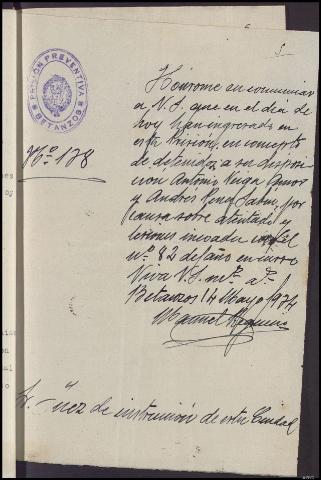 PRISIÓN PREVENTIVA
BETANZOS
Nº 138
5
Hónrome en comunicar
a V.S. que en el día de
hoy han ingresado en
esta Prisión, en concepto
de detenidos a su dispo
sición Antonio Veiga
y Andrés Pérez, por
causa sobre atentado y
lesiones incoada con el
nº 82 del año en curso
Viva V.S. ms. as.
Betanzos 14 Mayo 1934
Manuel
Sr. Juez de instrucción de esta Ciudad